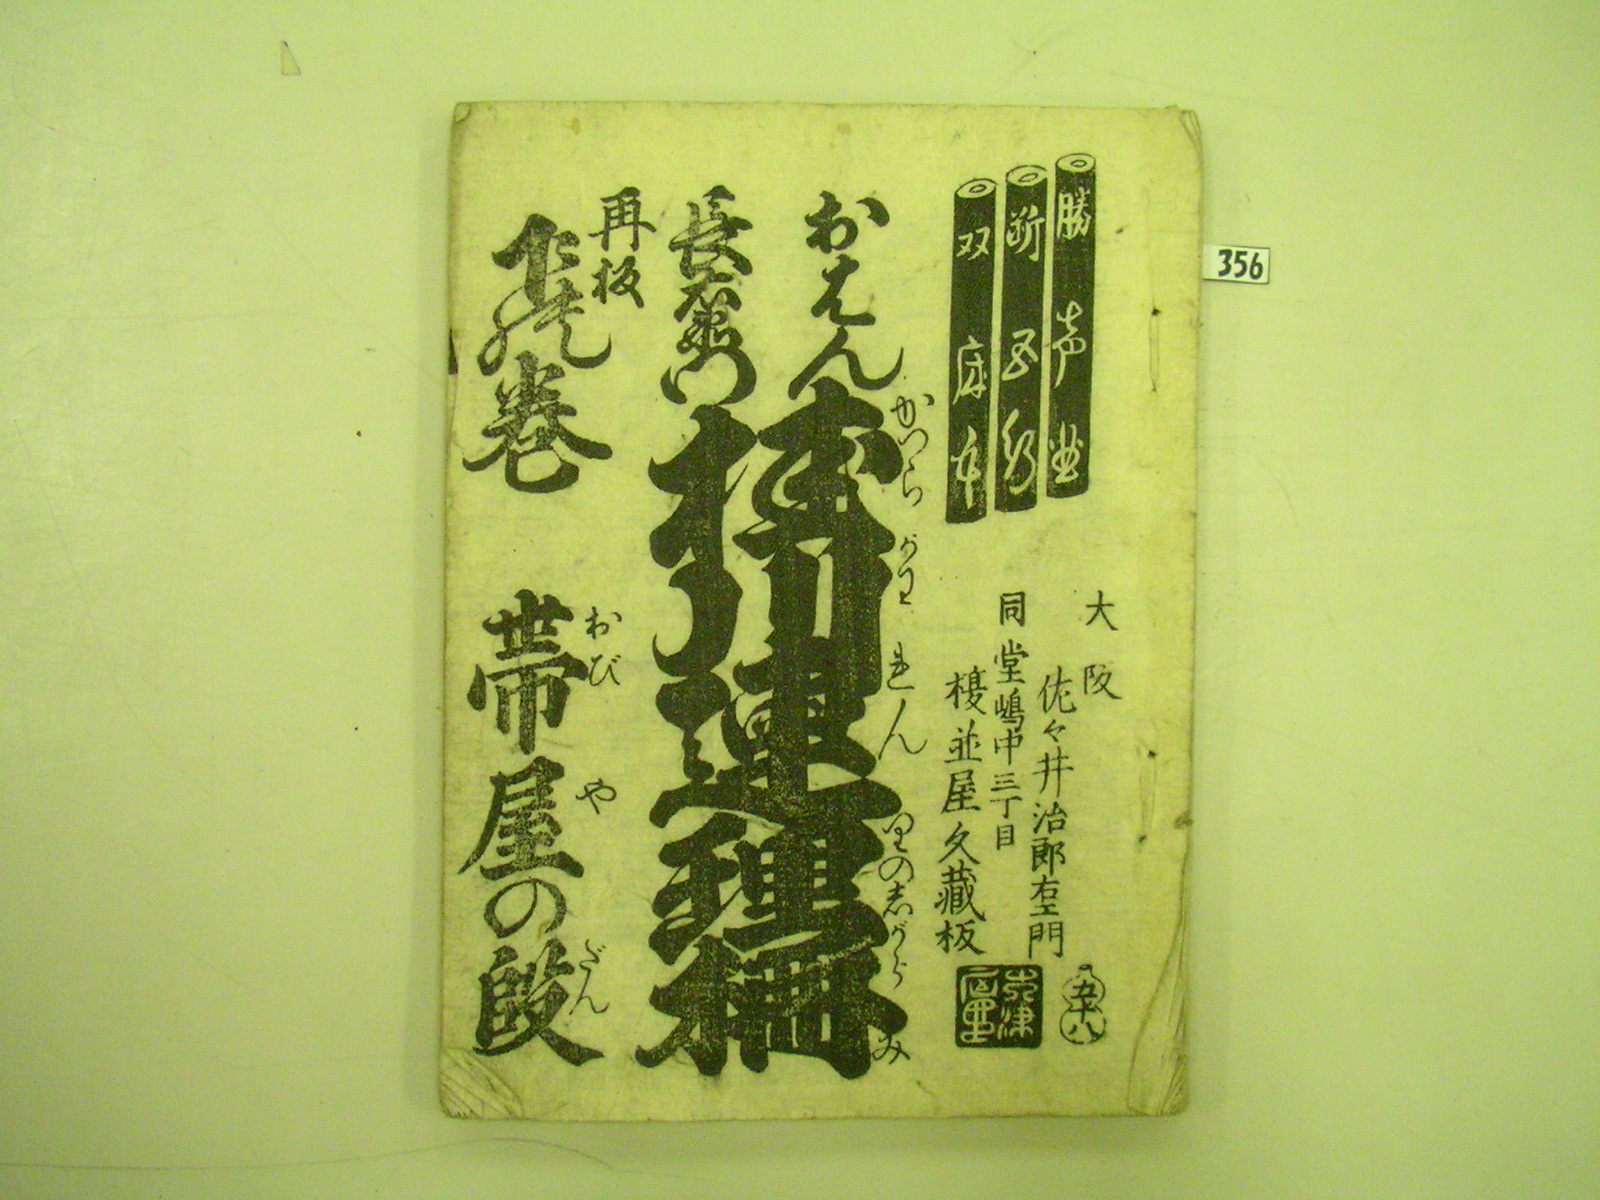 勝声堂
断
双床
大阪
佐々井治郎右エ門
同堂嶋中三丁目
榎並屋久藏板
五十八
おはん
長右衛門
桂川連理柵
かつらがわれんりのしがらみ
再板
下の巻
帯屋の段
おびやだん
356